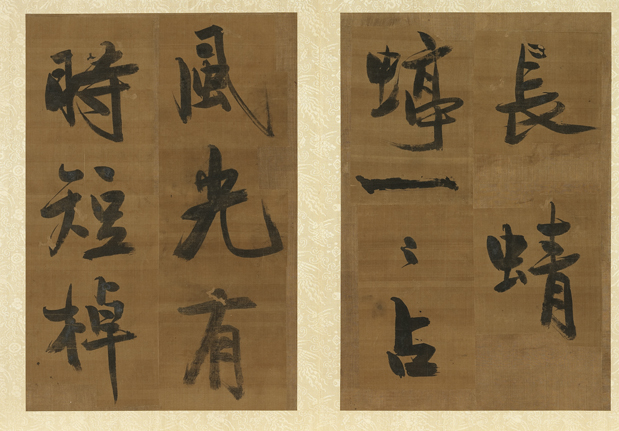 長蜻
蜓一〻占
風光有
時短棹